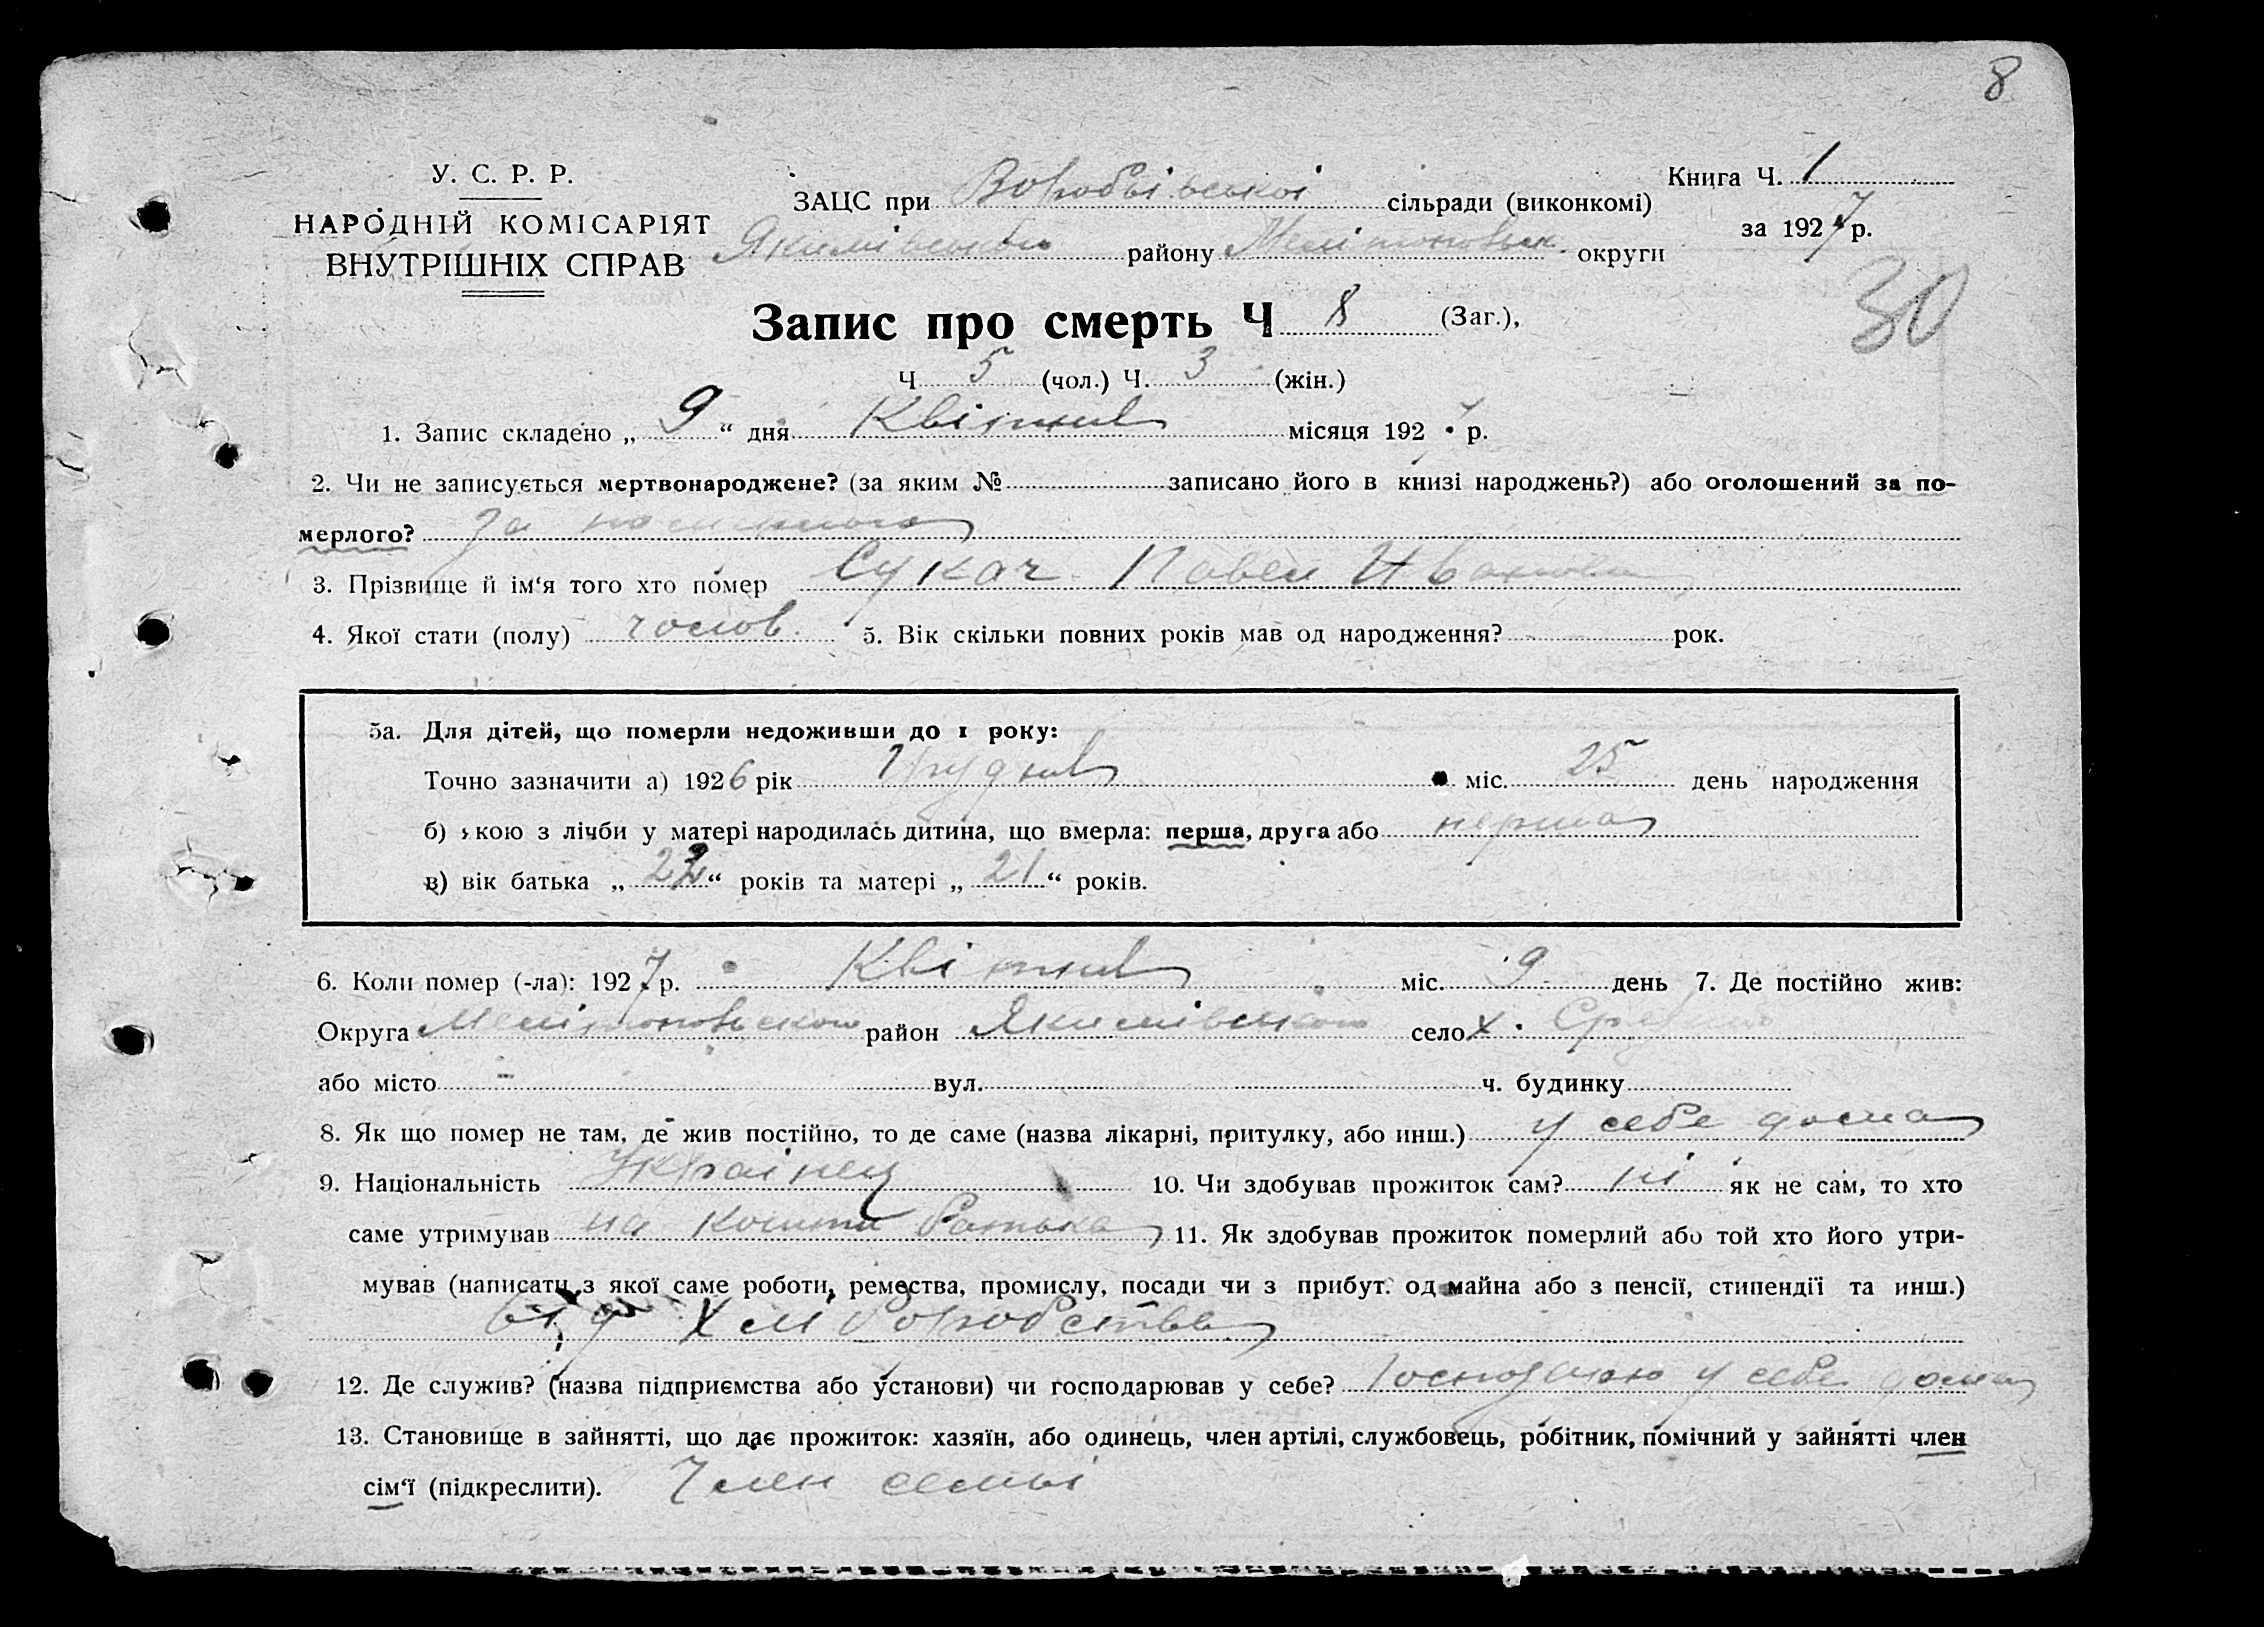 8
У. С. Р. Р.
НАРОДНІЙ КОМІСАРІЯТ
ВНУТРІШНІХ СПРАВ
ЗАЦС при Воробьівської сільради (виконкомі)
Якимівського району Мелітопольск. округи
Книга Ч. 1
за 1927 р.
30
Запис про смерть Ч 8 (Заг.),
Ч 5 (чол.) Ч. 3 (жін.)
1. Запис складено „ 9 “ дня Квітня місяця 1927 р.
2. Чи не записується мертвонароджене? (за яким № записано його в книзі народжень?) або оголошений за по-
мерлого? За померлого
3. Прізвище й ім‘я того хто помер Сукач Павел Иванович
4. Якої стати (полу) чолов. 5. Вік скільки повних років мав од народження? рок.
5а. Для дітей, що померли недоживши до 1 року:
Точно зазначити а) 1926 рік Грудня міс. 25 день народження
б) якою з лічби у матері народилась дитина, що вмерла: перша, друга або перша
в) вік батька „ 22 “ років та матері „ 21 “ років.
6. Коли помер (-ла): 1927 р. Квітня міс. 9 день 7. Де постійно жив:
Округа Мелітопольського район Якимівського село х.
або місто - вул. ч. будинку
8. Як що помер не там, де жив постійно, то де саме (назва лікарні, притулку, або инш.) у себе дома
9. Національність Українец 10. Чи здобував прожиток сам? ні як не сам, то хто
саме утримував на кошти батька 11. Як здобував прожиток померлий або той хто його утри-
мував (написати з якої саме роботи, ремества, промислу, посади чи з прибут. од майна або з пенсії, стипендії та инш.)
від хліборобства
12. Де служив? (назва підприємства або установи) чи господарював у себе? у себе дома
13. Становище в зайнятті, що дає прожиток: хазяїн, або одинець, член артілі, службовець, робітник, помічний у зайнятті член
сім‘ї (підкреслити). Член семьі